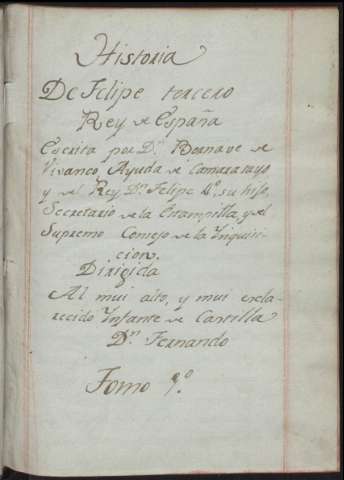 Historia
De Felipe tercero
Rey de España
Escrita por Dn. Bernave de
Vivanco, Ayuda de Camara suyo
y del Rey Dn. Felipe 4º. su hijo,
Secretario de la Estampilla, y del
Supremo Consejo de la Ynquisi-
cion.
Dirigida
Al mui alto, y mui escla-
recido Ynfante de Castilla
Dn. Fernando
Tomo 1º.